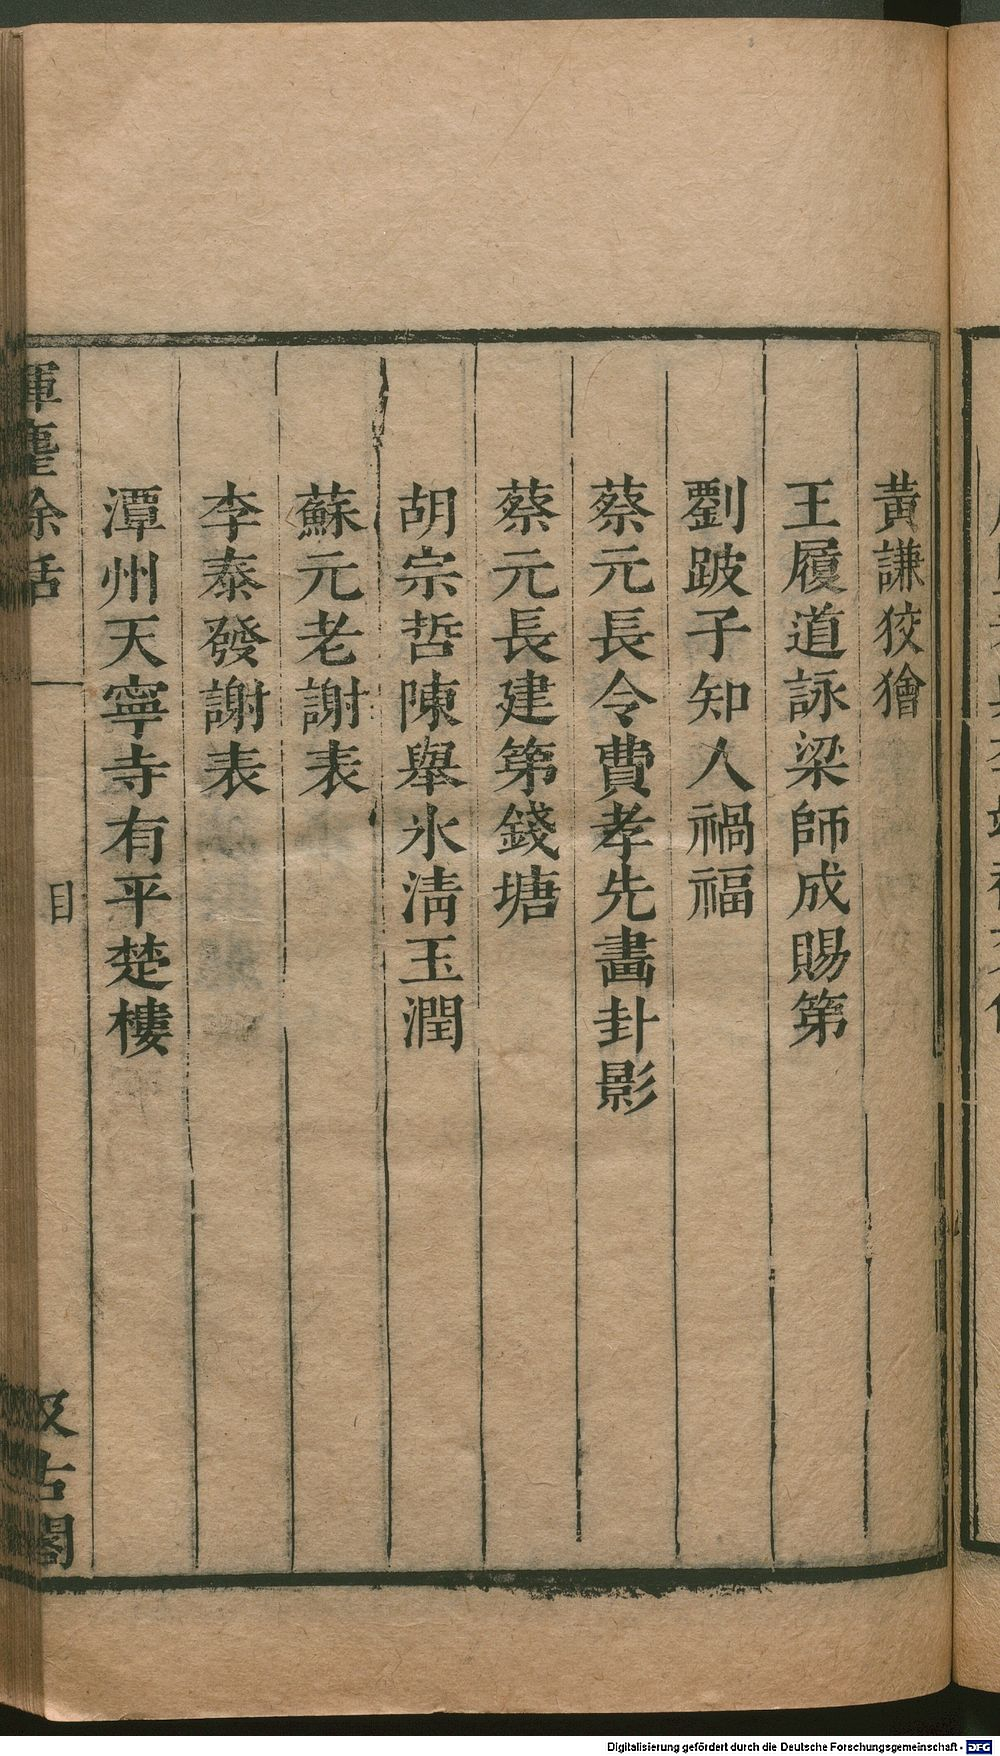 黃謙狡獪
王履道詠梁師成賜第
劉跛子知人禍福
蔡元長令費孝先畵卦影
蔡元長建第錢塘
胡宗哲陳舉氷淸玉潤
蘇元老謝表
李泰發謝表
潭州天寧寺有平楚樓
揮麈餘話
目
汲古閣
Digitalisierung gefördert durch die Deutsche Forschungsgemeinschaft - DFG